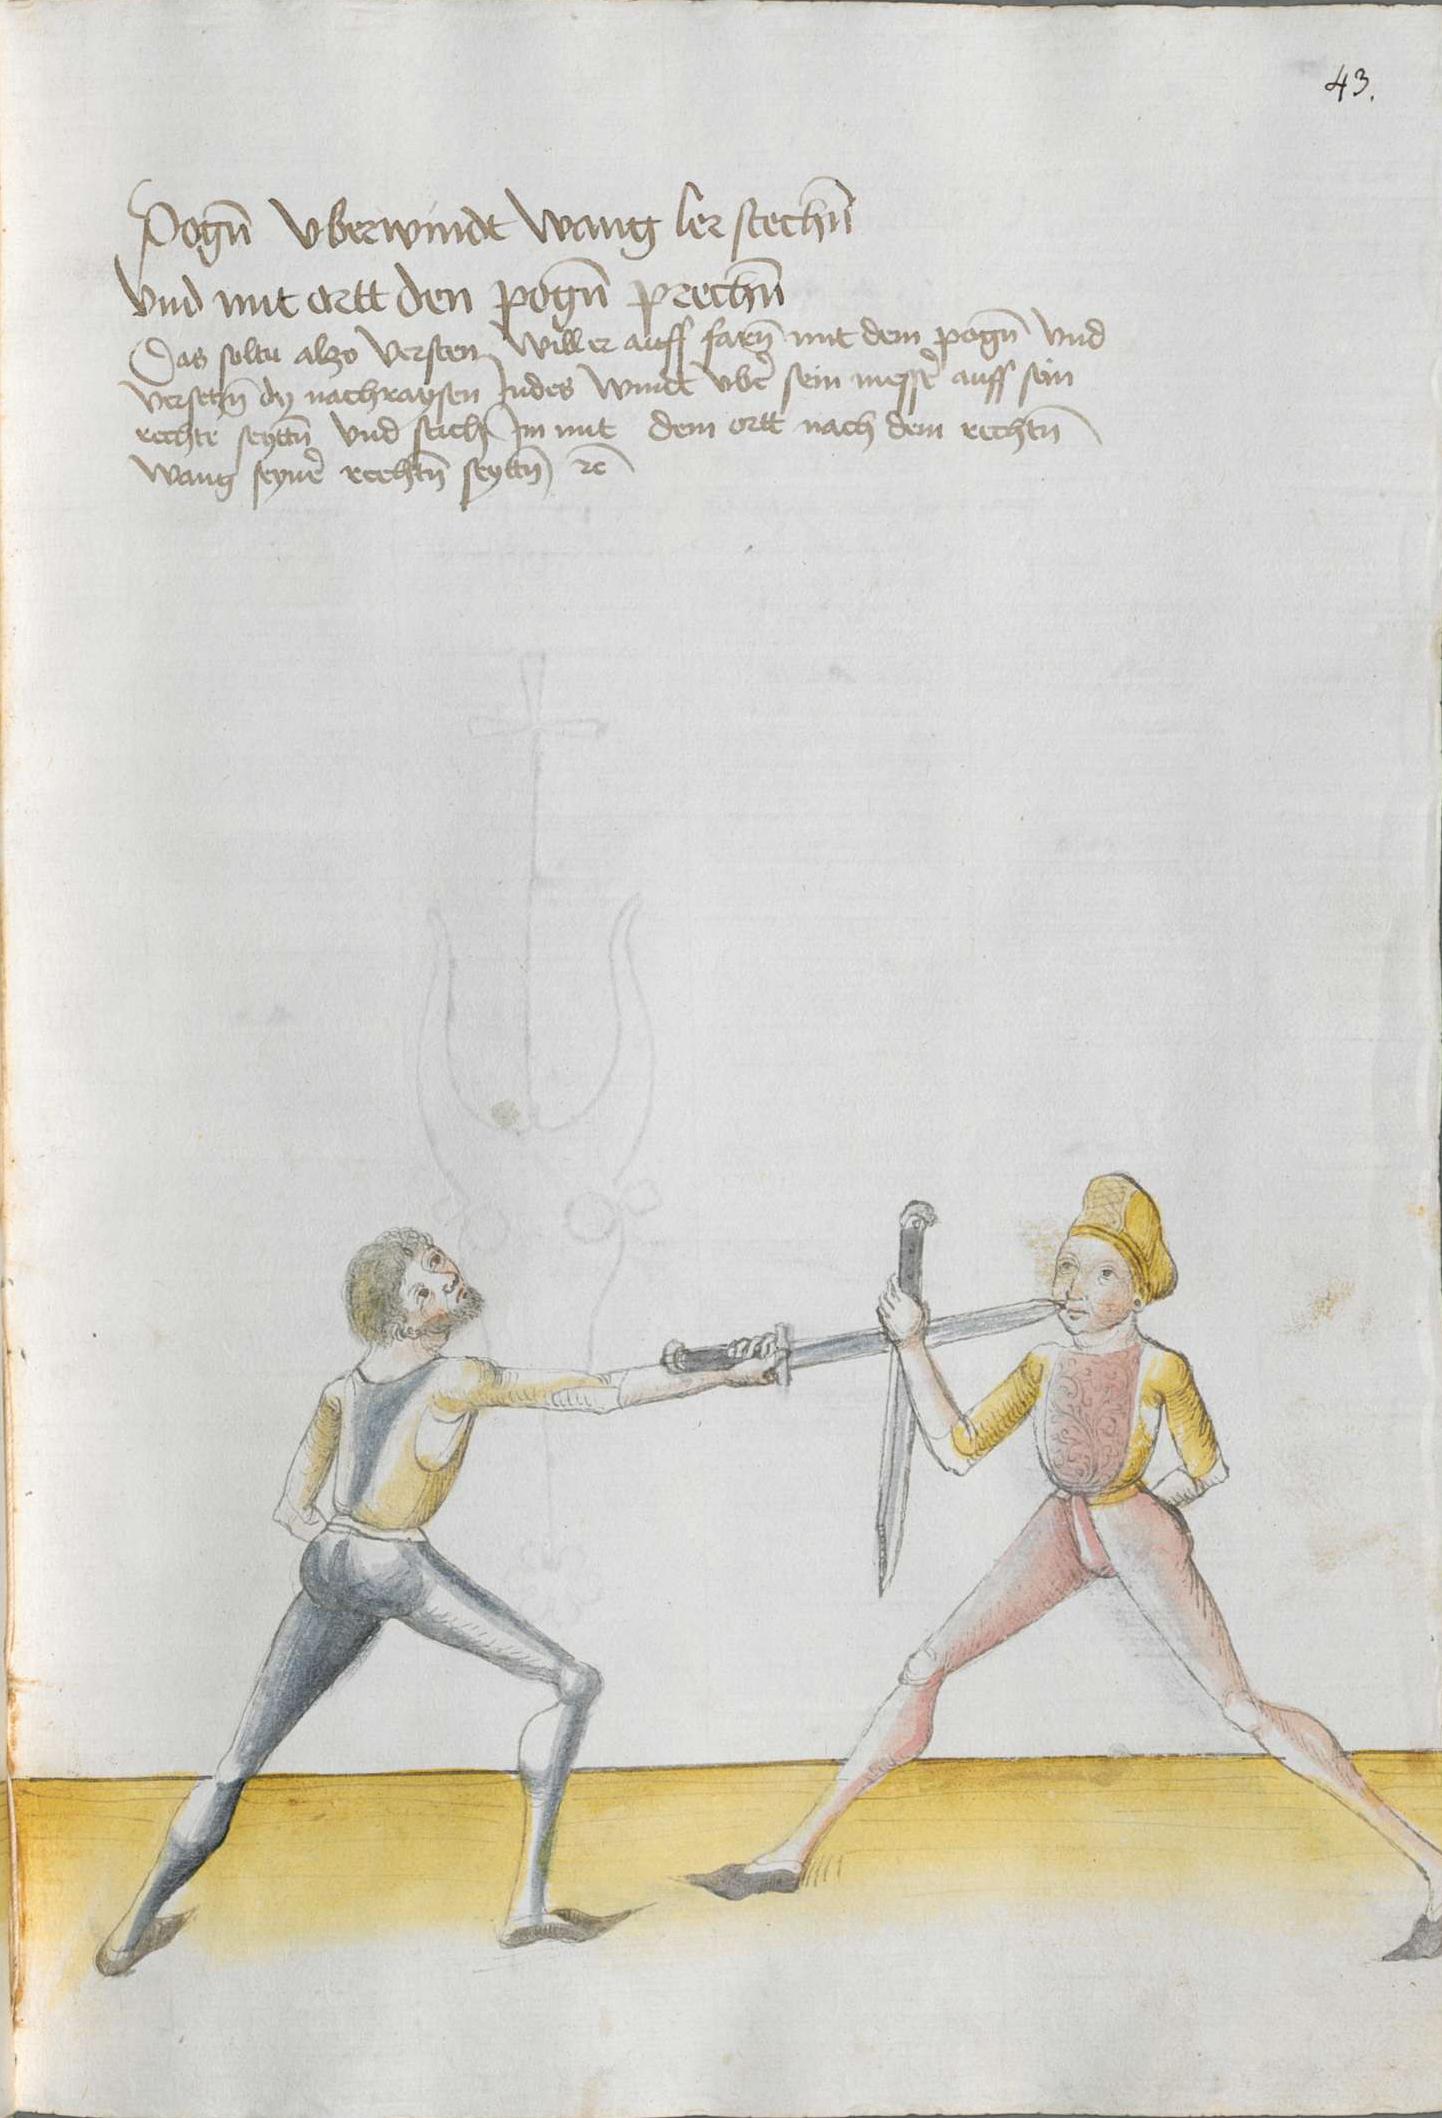 43.
Pogn̄ vberwindt wang ler stechn̄
vnd mit ortt den pogn̄ prechn̄
Das soltu alzo versten Will er auff farn̄ mit dem pogn̄ vnd
versetzn̄ dy nachraysen Indes windt vber sein messer auff sein
rechte seyttn̄ vnd stich Im mit dem ortt nach dem rechtn̄
wang seyner rechtn̄ seyttn̄ ꝛc̄